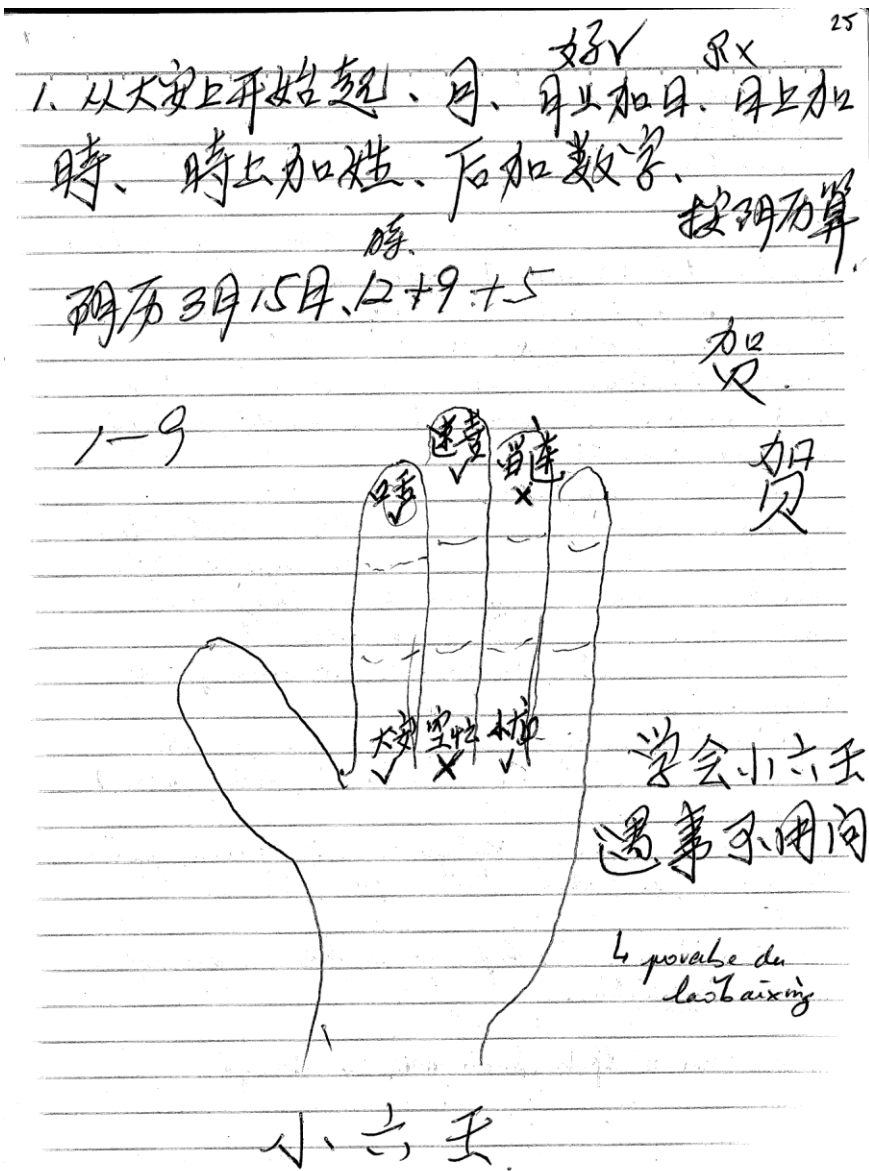 25
好√ 不×
1. 从大安上开始起、月、月上加日、日上加
時、時上加姓、后加数字、
按阴历算
時、
阴历3月15日、12+9+5
贺
1-9
贺
速喜 √
留连 ×
口舌 √
大安 √ 空忙 × √
学会小六壬
遇事不用问
↳ proverbe du
laobaixing
小六壬